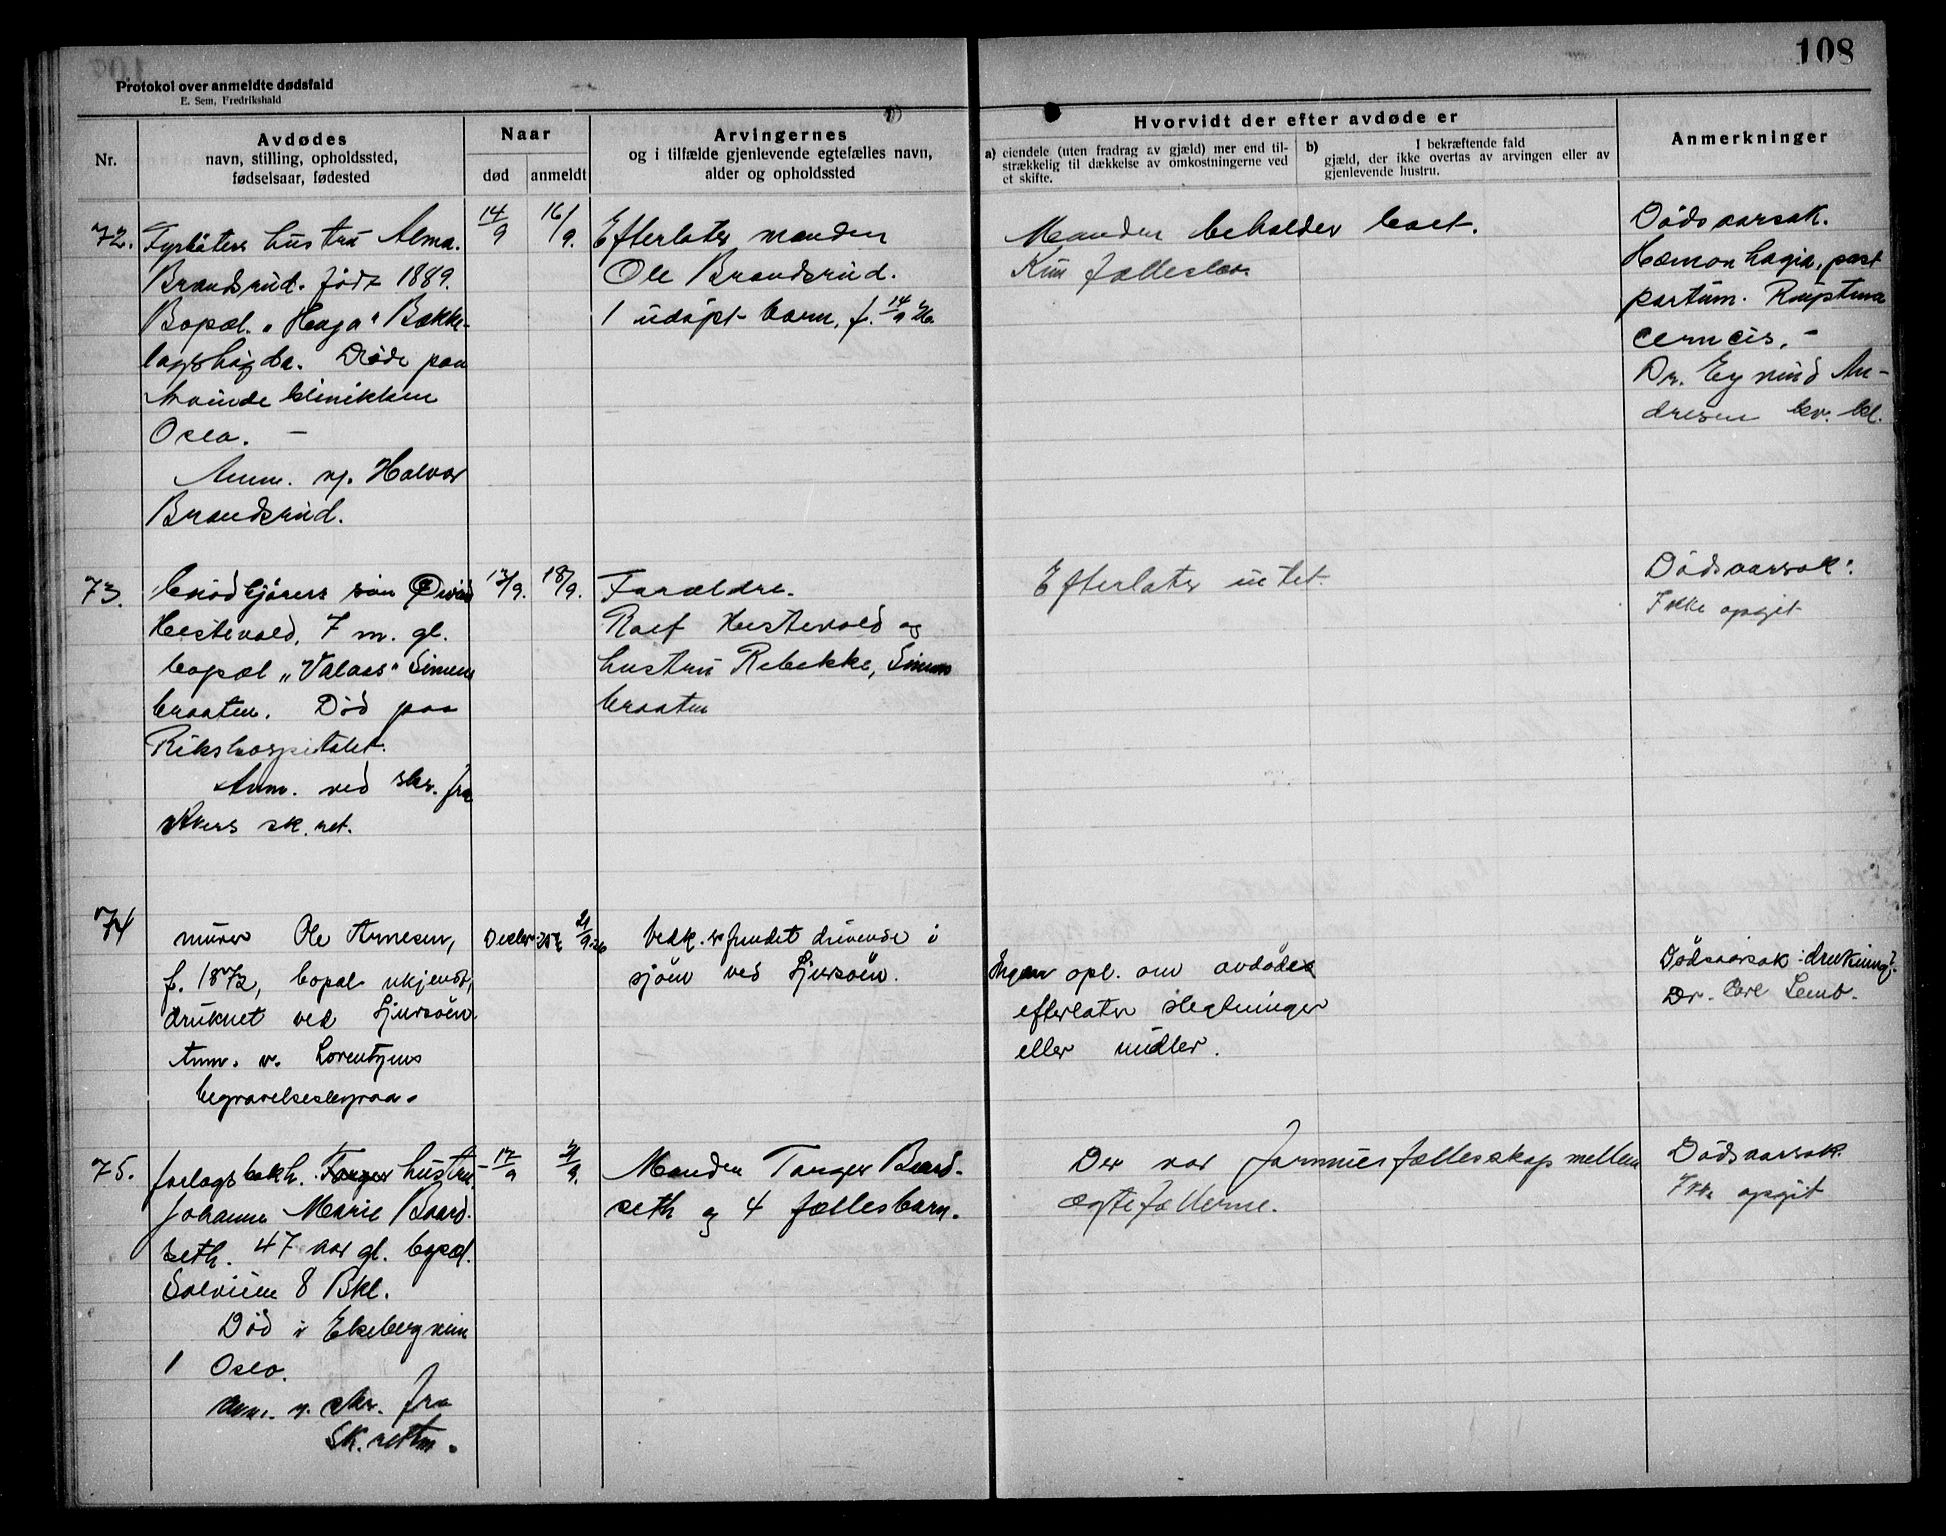 108
Protokol over anmeldte dødsfald
E. Sem, Fredrikshald
Nr.
Avdødes
navn, stilling, opholdssted,
fødselsaar, fødested
Naar
død
anmeldt
Arvingernes
og i tilfælde gjenlevende egtefælles navn,
alder og opholdssted
Hvorvidt der efter avdøde er
a) eiendele (uten fradrag av gjæld) mer end til-
strækkelig til dækkelse av omkostningerne ved
et skifte.
b) I bekræftende fald
gjæld, der ikke overtas av arvingen eller av
gjenlevende hustru.
Anmerkninger
72.
Fyrbøters hustru Alma
Brandsrud. født 1889.
Bopæl. "Haga" Bække-
lagshøgda. Døde paa
kvindeklinikken
Oslo. –
Anm. v/. Halvor
Brandsrud.
14/9
16/9.
Efterlater manden
Ole Brandsrud.
1 udøpt barn, f. 14/9 26.
Manden beholder boet.
Kun fællesbarn
Dødsaarsak.
Hæmorrhagia, post
partum. Ruptura
cervicis. –
Dr. Eyvind An-
dresen kv. kl.
73.
søn
Hestevold, 7 m. gl.
bopæl "Valaas" Simens
braaten. Død paa
Rikshospitalet.
Anm. ved skr. fra
Akers sk. ret.
13/9.
18/9.
Forældre.
Rolf Hestevold og
hustru Rebekke, Simens
braaten
Efterlater intet.
Dødsaarsak:
Ikke opgit
74
murer Ole Arnesen,
f. 1872, bopæl ukjendt,
druknet ved Ljursøen.
Anm. v. Lorentzens
begravelsesbyraa.
Decbr.
21/9.26
Vedk. er fundet drivende i
sjøen ved Ljursøen.
Ingen opl. om avdøde
efterlater slegtninger
eller midler.
Dødsaarsak: drukning?
Dr. Carl Semb.
75.
forlagsbokh. Tanger hustru
Johanne Marie Baard-
seth. 47 aar gl. bopæl.
Solveien 8 Bkl.
Død i Ekebergveien
1 Oslo.
Anm. v. skr. fra
Sk. retten.
17/9
21/9.
Manden Tanger Baard-
seth og 4 fællesbarn.
Der var formuesfællesskap mellem
ægtefællerne.
Dødsaarsak.
Ikke opgit